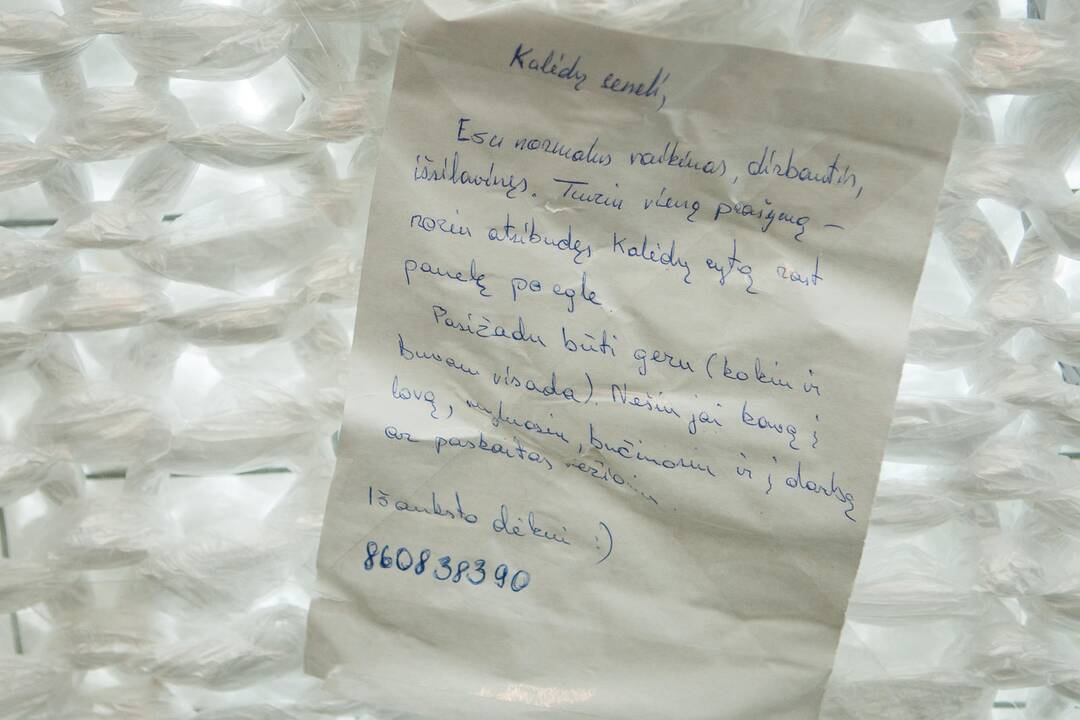 Kalėdų seneli,
Esu normalus vaikinas, dirbantis,
išsilavinęs. Turiu vieną prašymą –
noriu atsibudęs Kalėdų rytą rast
panelę po egle.
Pasižadu būti geru (kokiu ir
buvau visada). Nešiu jai kavą į
lovą, myluosiu, bučiuosiu ir į darbą
ar paskaitas vežiosiu.
Išanksto dėkui :)
860838390